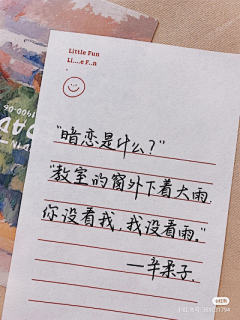 Little Fun
Li...e F..n
“暗恋是什么？”
“教室的窗外下着大雨，
你没看我，我没看雨。”
—辛柔子.
1900-06
小红书